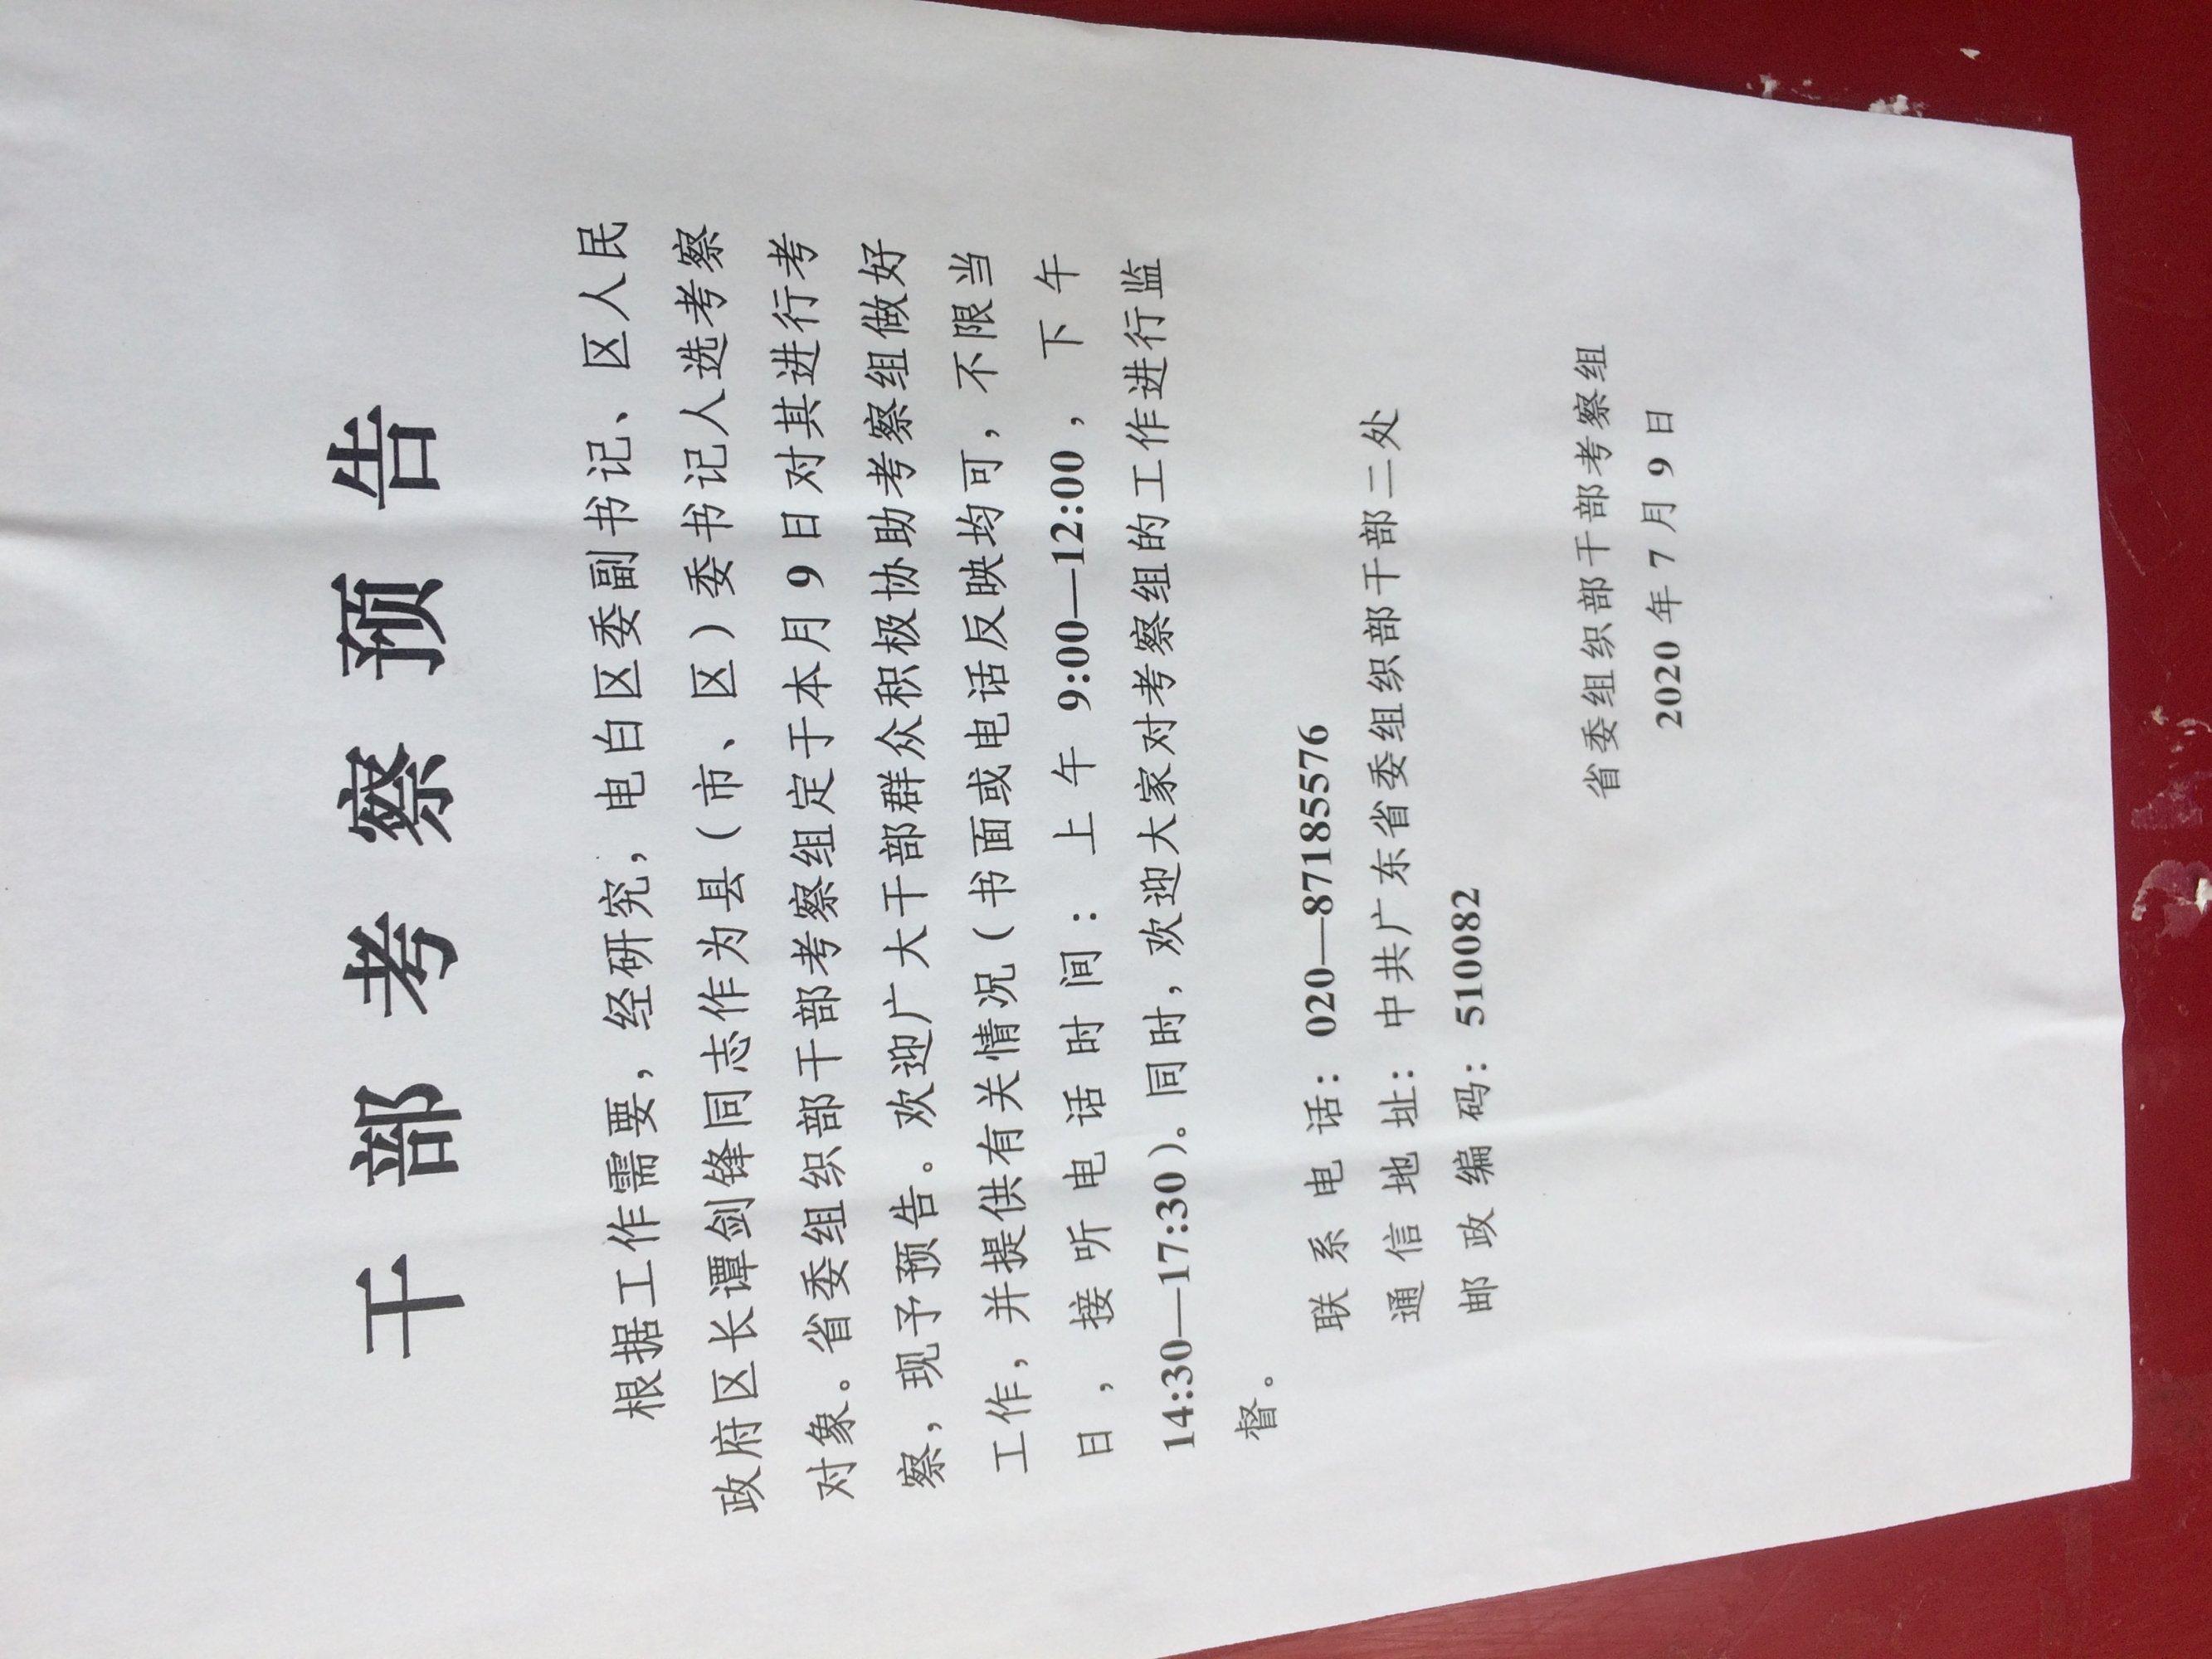 干部考察预告
根据工作需要，经研究，电白区委副书记、区人民
政府区长谭剑锋同志作为县（市、区）委书记人选考察
对象。省委组织部干部考察组定于本月 9 日对其进行考
察，现予预告。欢迎广大干部群众积极协助考察组做好
工作，并提供有关情况（书面或电话反映均可，不限当
日，接听电话时间：上午 9:00—12:00，下午
14:30—17:30）。同时，欢迎大家对考察组的工作进行监
督。
联系电话：020—87185576
通信地址：中共广东省委组织部干部二处
邮政编码：510082
省委组织部干部考察组
2020 年 7 月 9 日